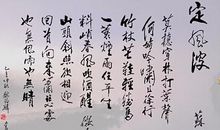 定風波 蘇
莫聽穿林打葉聲
何妨吟嘯且徐行
竹杖芒鞋輕勝馬誰怕
一蓑煙雨任平生
料峭春風吹酒醒微冷
山頭斜照卻相迎
也無風雨也無晴